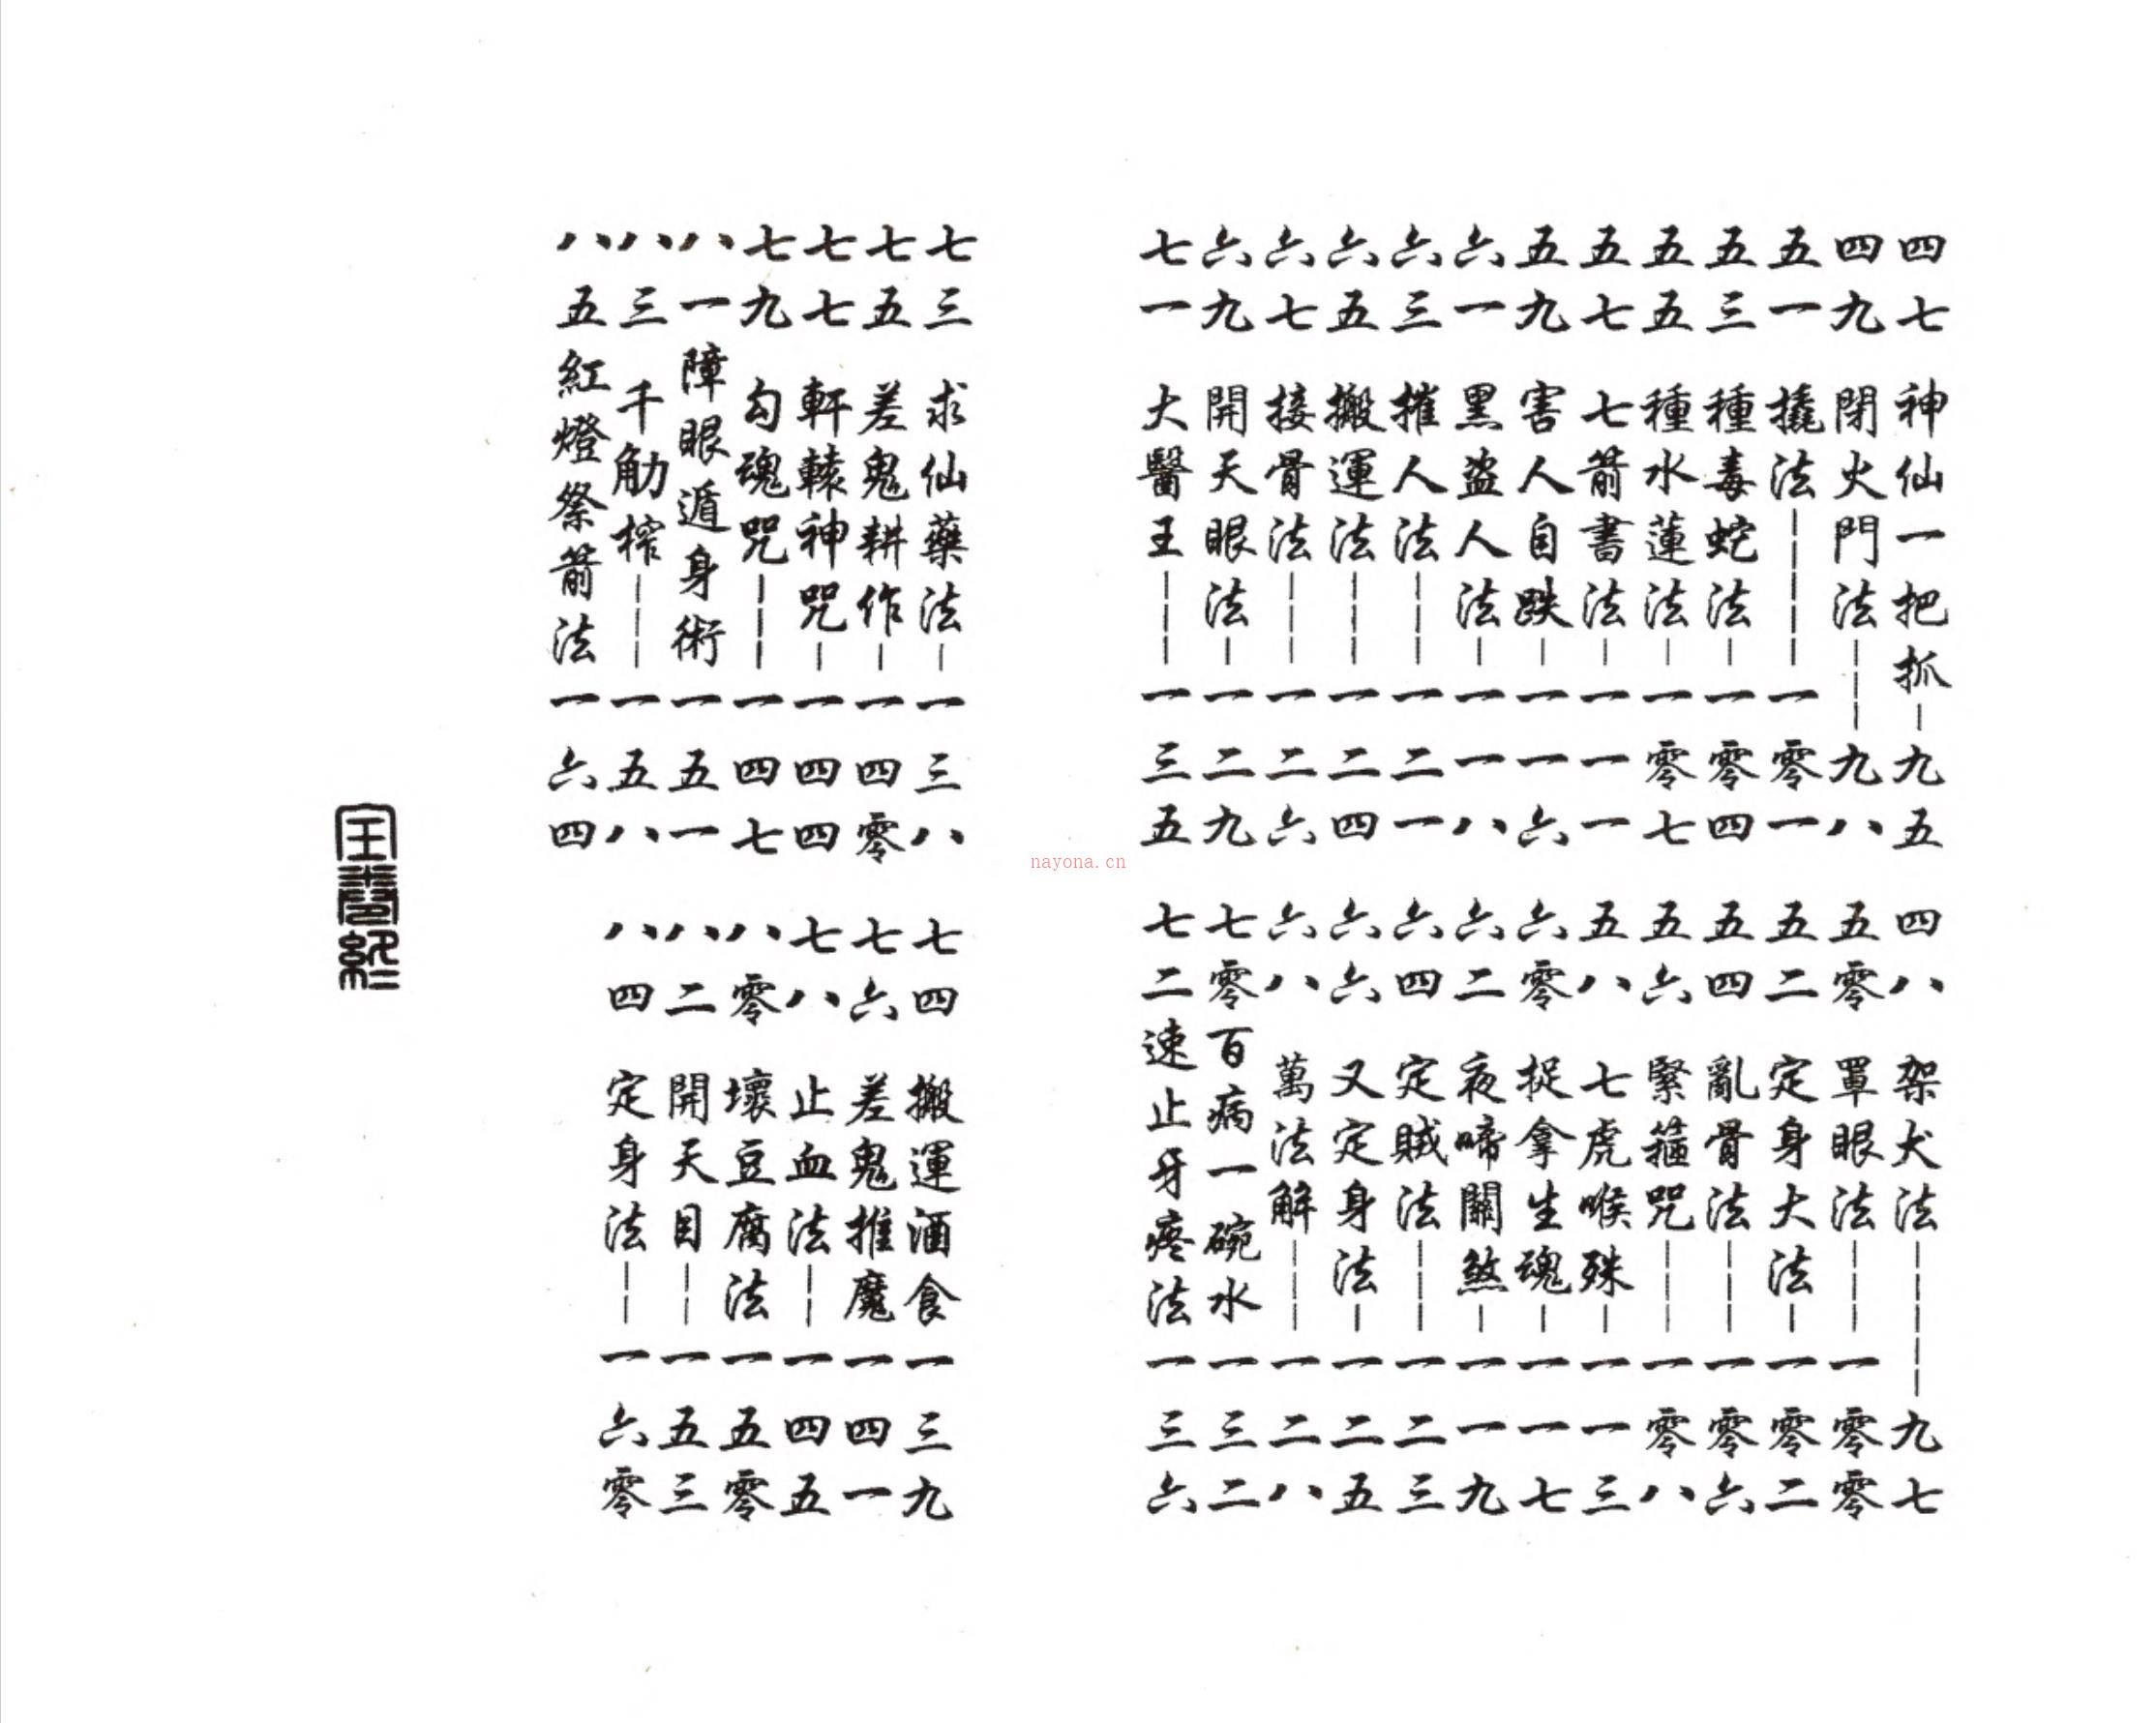 四七 神仙一把抓 九五 四八 架犬法 九七
四九 閉火門法 九八 五零 罩眼法 一零零
五一 撬法 一零一 五二 定身大法 一零二
五三 種毒蛇法 一零四 五四 亂骨法 一零六
五五 種水蓮法 一零七 五六 緊箍咒 一零八
五七 七箭書法 一一一 五八 七虎喉殊 一一三
五九 害人自跌 一一六 六零 捉拿生魂 一一七
六一 黑盗人法 一一八 六二 夜啼關煞 一一九
六三 摧人法 一二一 六四 定賊法 一二三
六五 搬運法 一二四 六六 又定身法 一二五
六七 接骨法 一二六 六八 萬法解 一二八
六九 開天眼法 一二九 七零 百病一碗水 一三二
七一 大醫王 一三五 七二 速止牙疼法 一三六
七三 求仙藥法 一三八 七四 搬運酒食 一三九
七五 差鬼耕作 一四零 七六 差鬼推魔 一四一
七七 軒轅神咒 一四四 七八 止血法 一四五
七九 勾魂咒 一四七 八零 壞豆腐法 一五零
八一 障眼遁身術 一五一 八二 開天目 一五三
八三 千觔榨 一五八 八四 定身法 一六零
八五 紅燈祭箭法 一六四
nayona.cn